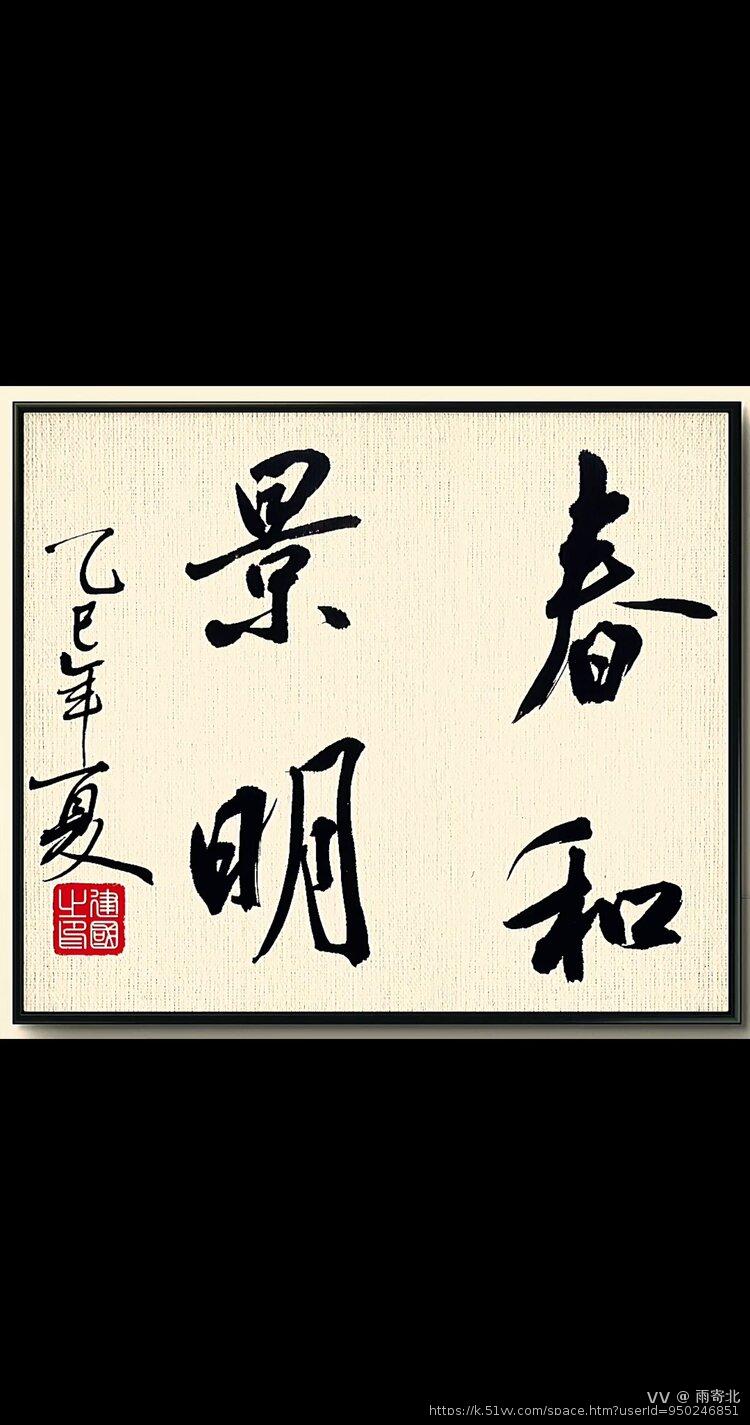 春和
景明
乙巳年夏
建國
之印
VV @ 雨寄北
https://k.51vv.com/space.htm?userId=950246851